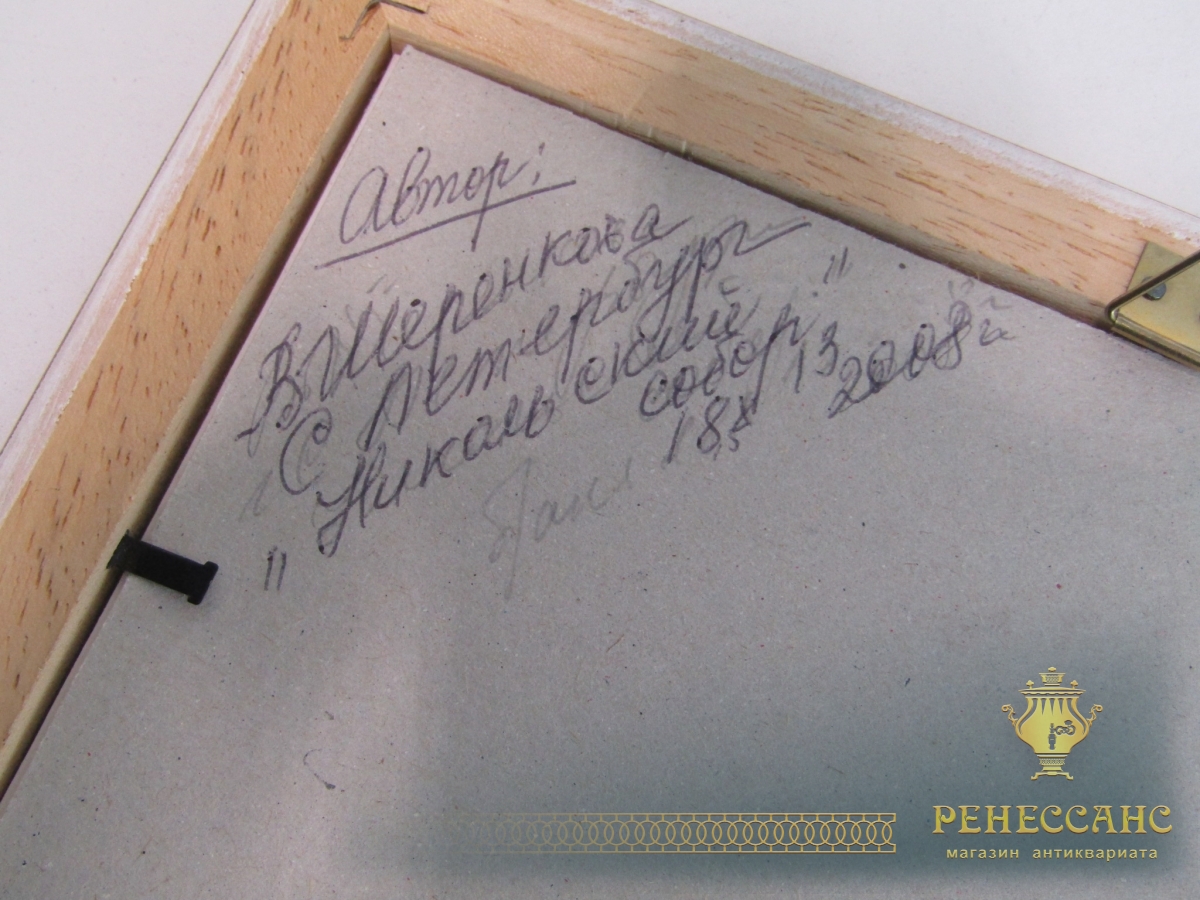 Автор:
В. Шеренкова
С Петербург
"Никольский
собор"
18х13 2008 г.
РЕНЕССАНС
магазин антиквариата